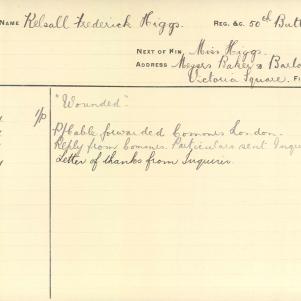 NAME Kelsall Frederick Higgs. REG. &C. 50th Batt
NEXT OF KIN, Miss Higgs.
ADDRESS Messrs Baker & Barlo
Victoria Square.
"Wounded".
P/P Cable forwarded Commrs London.
Reply from Commrs. Particulars sent Inqu
Letter of thanks from Inquirer.